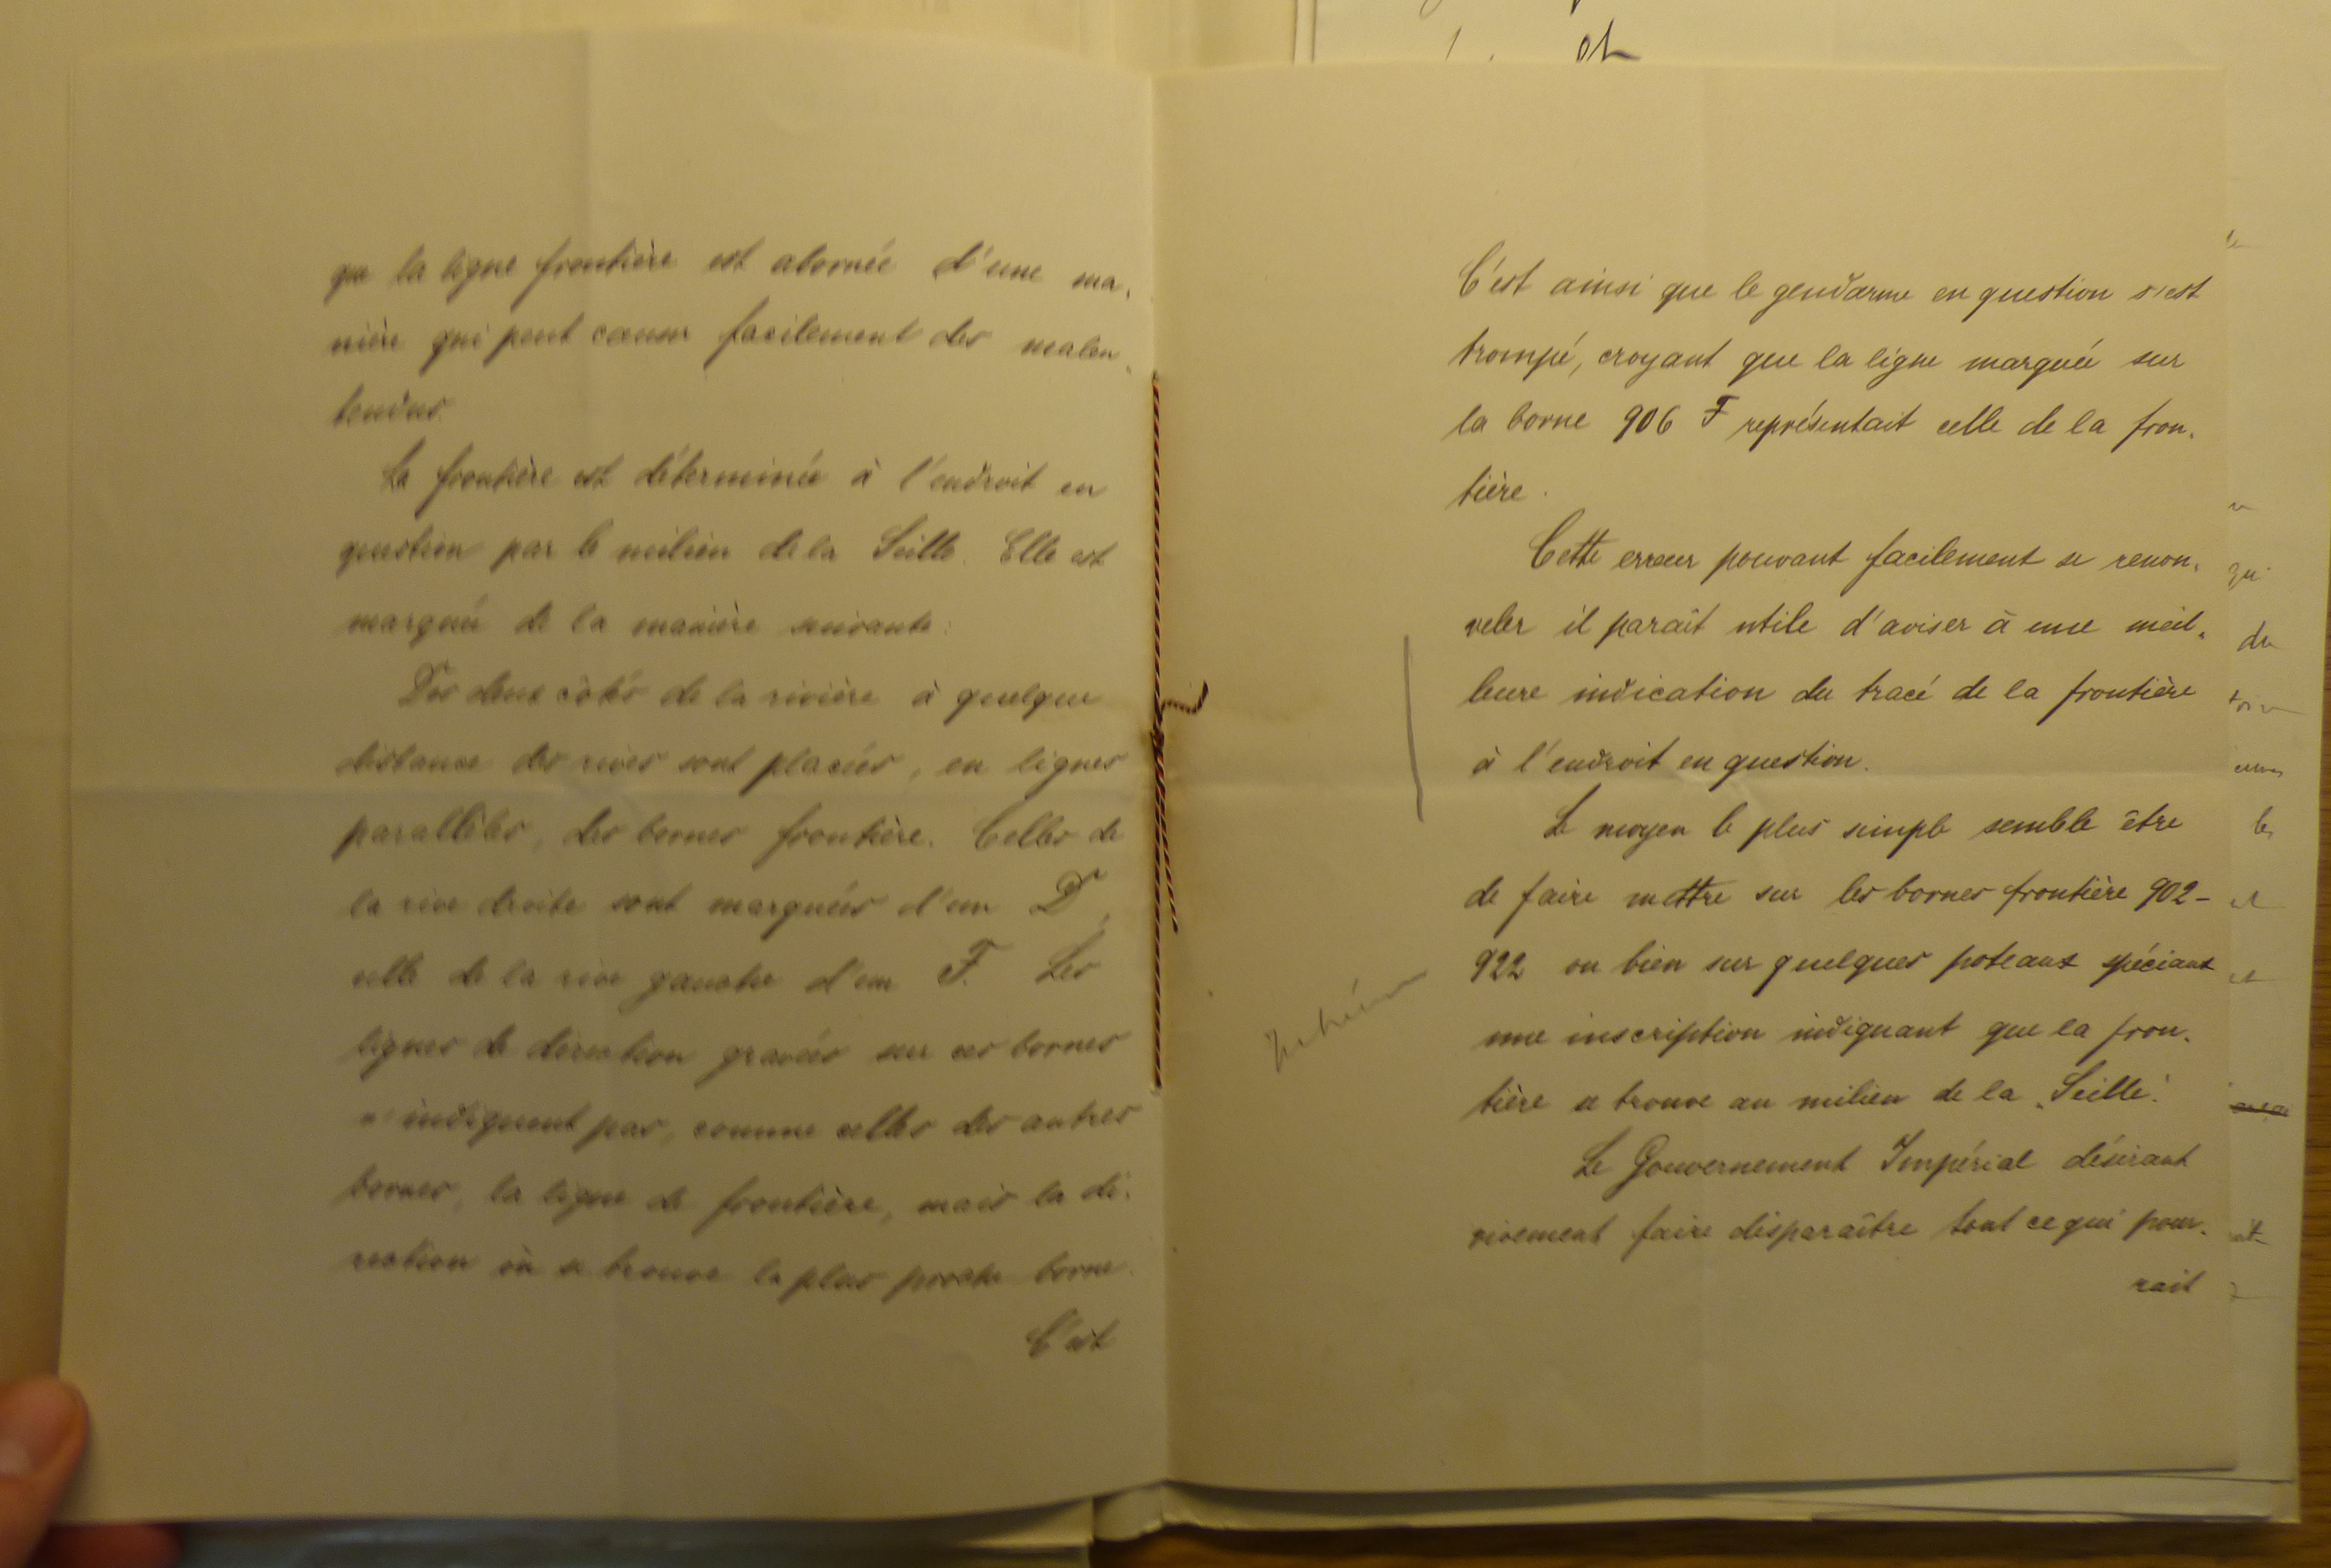 que la ligne frontière est abornée d'une ma-
nière qui peut causer facilement des malen-
tendus.
La frontière est déterminée à l'endroit en
question par le milieu de la Seille. Elle est
marquée de la manière suivante:
Des deux côtés de la rivière à quelque
distance des rives sont placées, en lignes
parallèles, des bornes frontière. Celles de
la rive droite sont marquées d'un D,
celle de la rive gauche d'un F. Les
lignes de direction gravées sur ces bornes
n'indiquent pas, comme celles des autres
bornes, la ligne de frontière, mais la di-
rection où se trouve la plus proche borne.
C'est
C'est ainsi que le gendarme en question s'est
trompé, croyant que la ligne marquée sur
la borne 906 F représentait celle de la fron-
tière.
Cette erreur pouvant facilement se renou-
veler il paraît utile d'aviser à une meil-
leure indication du tracé de la frontière
à l'endroit en question.
Le moyen le plus simple semble être
de faire mettre sur les bornes frontière 902-
922 ou bien sur quelques poteaux spéciaux
une inscription indiquant que la fron-
tière se trouve au milieu de la "Seille".
Le Gouvernement Impérial désirant
vivement faire disparaître tout ce qui pour-
rait